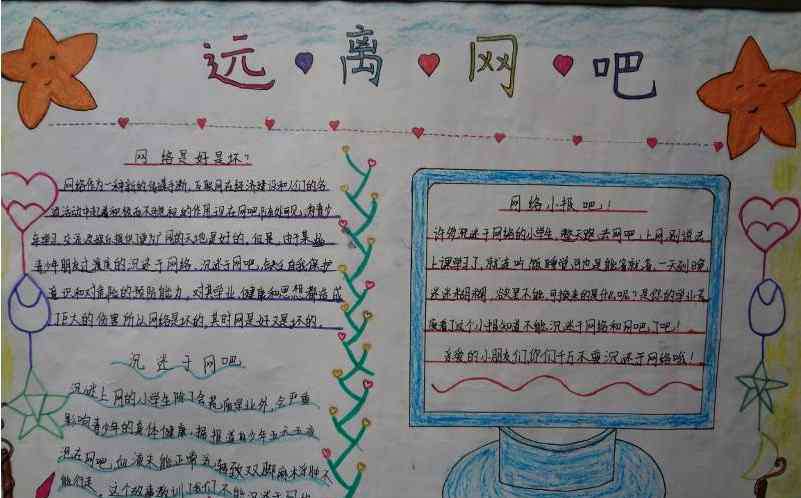 远离网吧
网络是好是坏?
网络作为一种新的传媒手断,互联网在经济建设和人们的各
项活动中起着积极而不可 的作用现在网吧 可见,为青少
年学习、交流及娱乐提供了更为广阔的天地是好的,但是,由于某些
青少年朋友过渡度的沉迷于网络、沉迷于网吧,缺乏自我保护
意识和对危险的预防能力,对其学业、健康和思想都造成
了巨大的伤害所以网络是坏的,其时网是好又是坏的。
沉迷于网吧
沉迷上网的小学生除了会荒废学业外,会严重
影响青少年的身体健康,据报道有少年五天五夜
沉在网吧,血液未能正常 双脚麻木浮肿不
能行走。这个故事教训了我们不能沉迷于网络
网络小报吧!!
许你沉迷于网络的小学生,整天跑去网吧,上网,别说说
上课学习了,就连吃饭睡觉可也是能省就省,一天到晚
迷迷糊糊,欲罢不能,可换来的是什么呢?是你的学业荒
废看了这个小报知道不能沉迷于网络和网吧了吧!
亲爱的小朋友们,你们千万不要沉迷于网络哦!